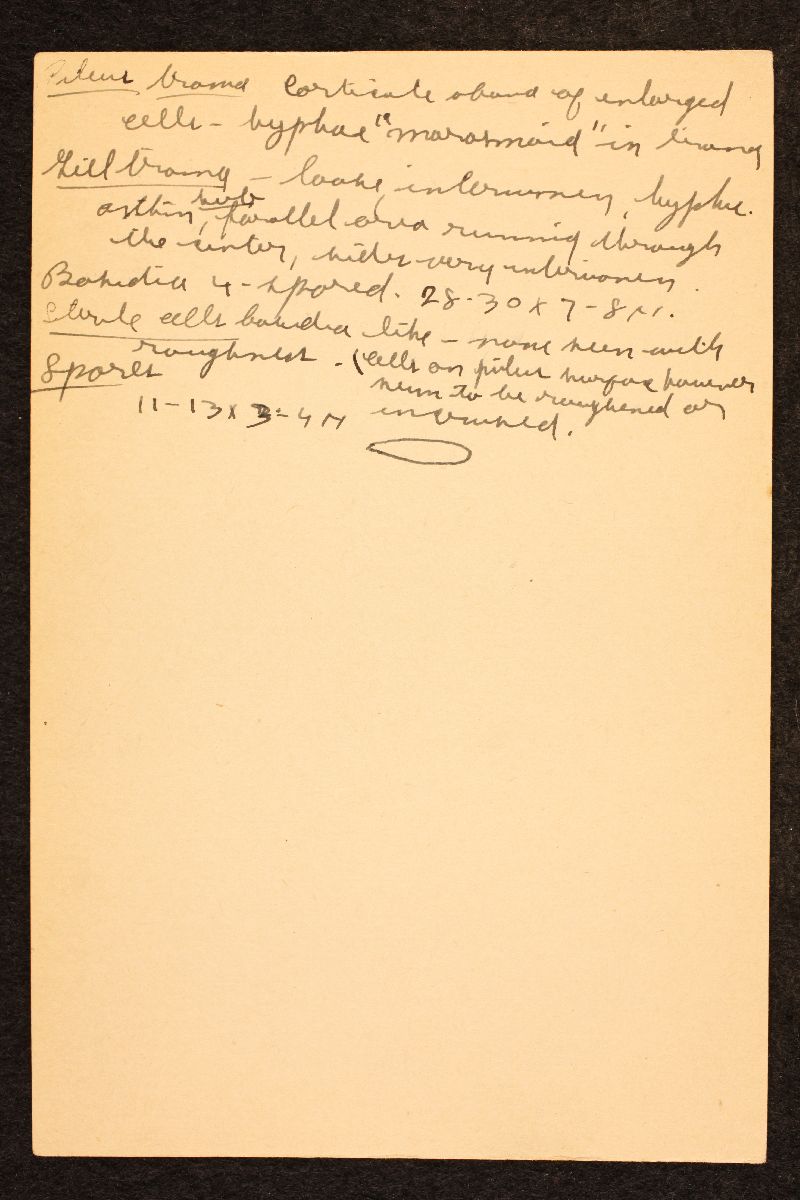 Pileus trama corticate a band of enlarged
cells - hyphae "marasmoid" in trama
Gill trama - loose, interwoven, hyphae.
a thin, parallel area running through
the center, sides very interwoven.
Basidia 4-spored. 28-30 x 7-8 µ.
Sterile cells basidia like - none seen with
roughness. (cells on pileus surface however
Spores seem to be roughened or
11-13 x 3-4 µ incrusted.